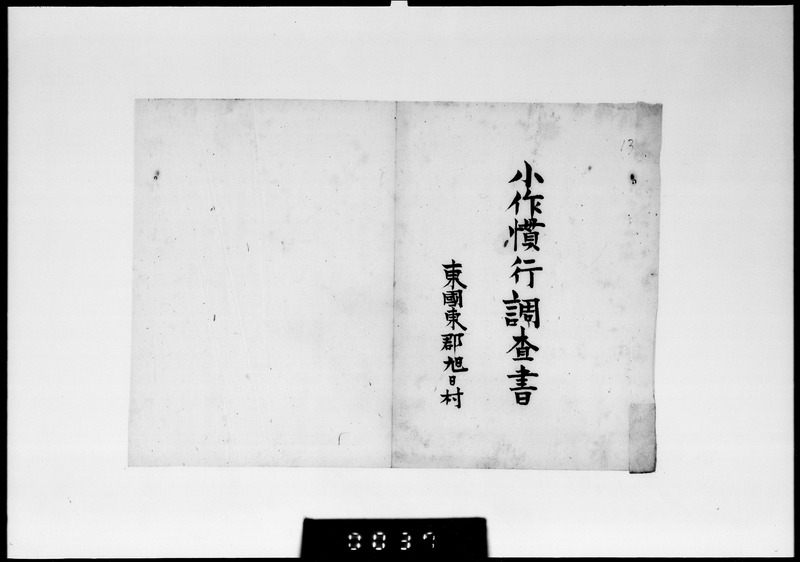 13
小作慣行調査書
東國東郡旭日村
0037